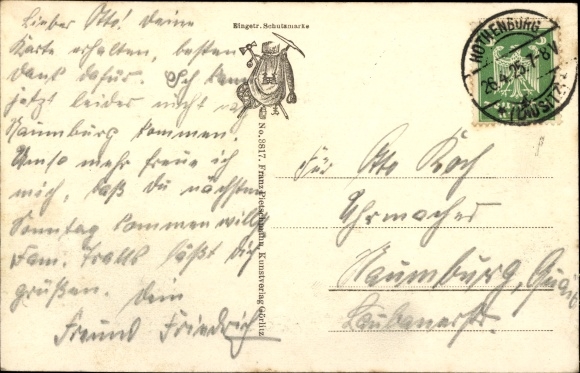 Lieber Otto! Deine
Karte erhalten, besten
Dank dafür. Ich kann
jetzt leider nicht
Naumburg kommen.
Umso mehr freue ich
mich, daß du nächsten
Sonntag kommen willst
Fam. Tralls läßt Dich
grüßen. Dein
Freund Friedrich
Eingetr. Schutzmarke
No. 8817. Franz Pietschmann, Kunstverlag Görlitz.
ROTHENBURG
26.4.25. 7-8 V
(LAUSITZ)
Für Otto Koch
Uhrmacher
Naumburg, Queis
Laubanerstr.